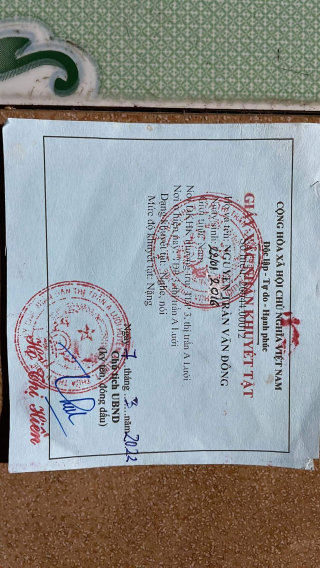 CỘNG HÒA XÃ HỘI CHỦ NGHĨA VIỆT NAM
Độc lập - Tự do - Hạnh phúc
GIẤY XÁC NHẬN KHUYẾT TẬT
Họ và tên: NGUYỄN TRẦN VĂN ĐÔNG
Ngày sinh:
Giới tính: Nam
Nơi ĐKHK thường trú: TDP 3, thị trấn A Lưới
Nơi ở hiện nay: thị trấn A Lưới
Dạng khuyết tật: Nghe, nói
Mức độ khuyết tật: Nặng
Ngày 7 tháng 3 năm 2022
Chủ tịch UBND
(ký tên, đóng dấu)
Hồ Thị Hiên